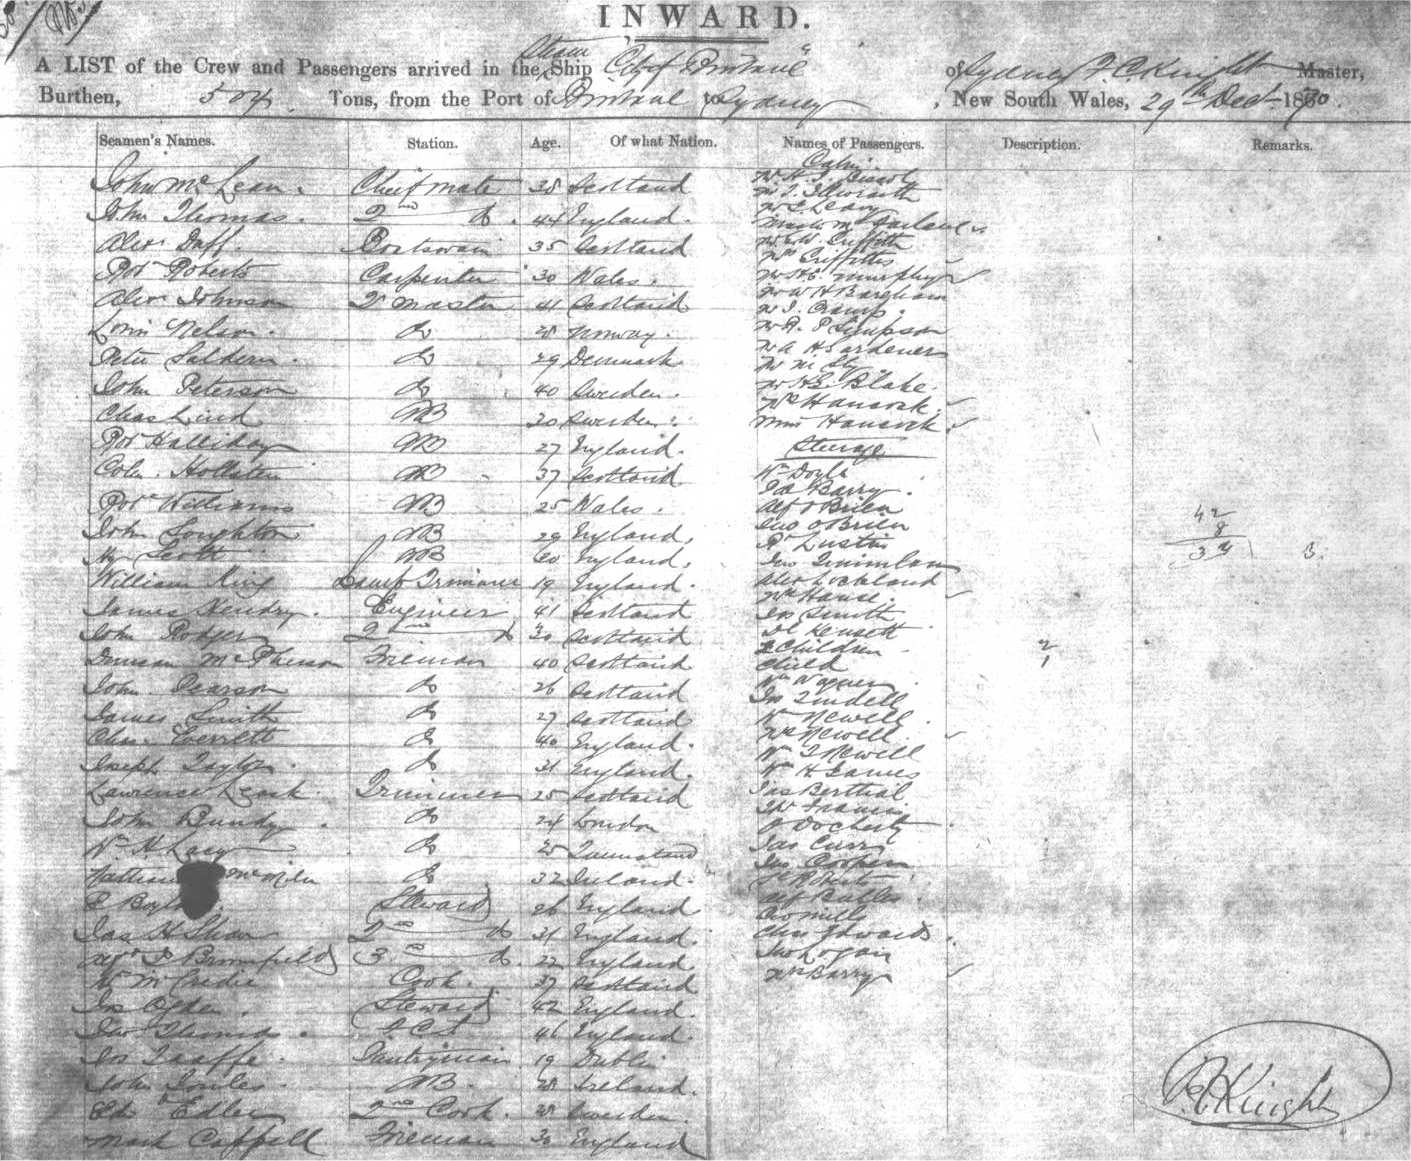 INWARD.
A LIST of the Crew and Passengers arrived in the Steam Ship City of Brisbane of Sydney P. C Knight Master,
Burthen, 504 Tons, from the Port of Brisbane to Sydney, New South Wales, 29th Dect 1870.
Seamen's Names. Station. Age. Of what Nation. Names of Passengers. Description. Remarks.
Cabin
John McLean. Cheif mate 38 Scotland
John Thomas. 2nd Do. 44 England.
Mr Leary
Alexr Daff. Boatswain 35 Scotland
Mr Griffith
Robt Roberts Carpenter 30 Wales.
Mrs Griffiths
Mr Murphy
Alexr Johnson Qr Master 41 Scotland
Mr W H Bargham
Nelson. Do 28 Norway.
Mr J. Cramp.
Mr R. P Simpson
Peter Do 29 Denmark
Mr A H Gardener
John Peterson Do 40 Sweden.
Mr H E Blake.
Mrs Hancock.
Chas Lind AB 30 Sweden.
Miss Hancock.
Robt Halliday AB 27 England.
Steerage
Coln AB 37 Scotland
Wm Doyle
Barry.
Robt Williams AB 25 Wales.
Alf O'Brien
Jno O'Brien
42
8
34
3.
John AB 29 England.
Hy Scott AB 20 England.
William King Lamp Trimmer 19 England.
Alex Lockland
Mrs Hause.
James Hendry. Engineer 41 Scotland
Jas Smith
John Rodger 2nd Do 30 Scotland
2 Children 2
Duncan McPherson Fireman 40 Scotland
Child 1
John Pearson Do 26 Scotland
Wm Wagner
Jas Tindell
James Smith Do 27 Scotland
Wm Newell.
Chas Everett Do 40 England.
Mrs Newell.
Wm J Newell
Joseph Taylor. Do 31 England.
Wm H Eames
Lawrence Leask Trimmer 25 Scotland
Jas Berthal
John Bundy Do 24 London
P Docherty
Wm H Lacy Do 25
Jas Curr
Jno Cooper
McMilan Do 32 Ireland.
E Steward 26 England
Geo Mills
Jas H Shaw 2nd Do 31 England.
Chas Edwards.
J Bromfield 3rd Do. 22 England
Jno Logan
Mrs Barry
Wm McCredie Cook. 37 Scotland
Jas Steward 42 England.
Geo Thomas. 46 England.
Jos Taaffe. Pantryman 19 Dublin
John AB. 28 Ireland.
Edler 2nd Cook. 28 Sweden
Mark Cappell Fireman 30 England
P. C Knight